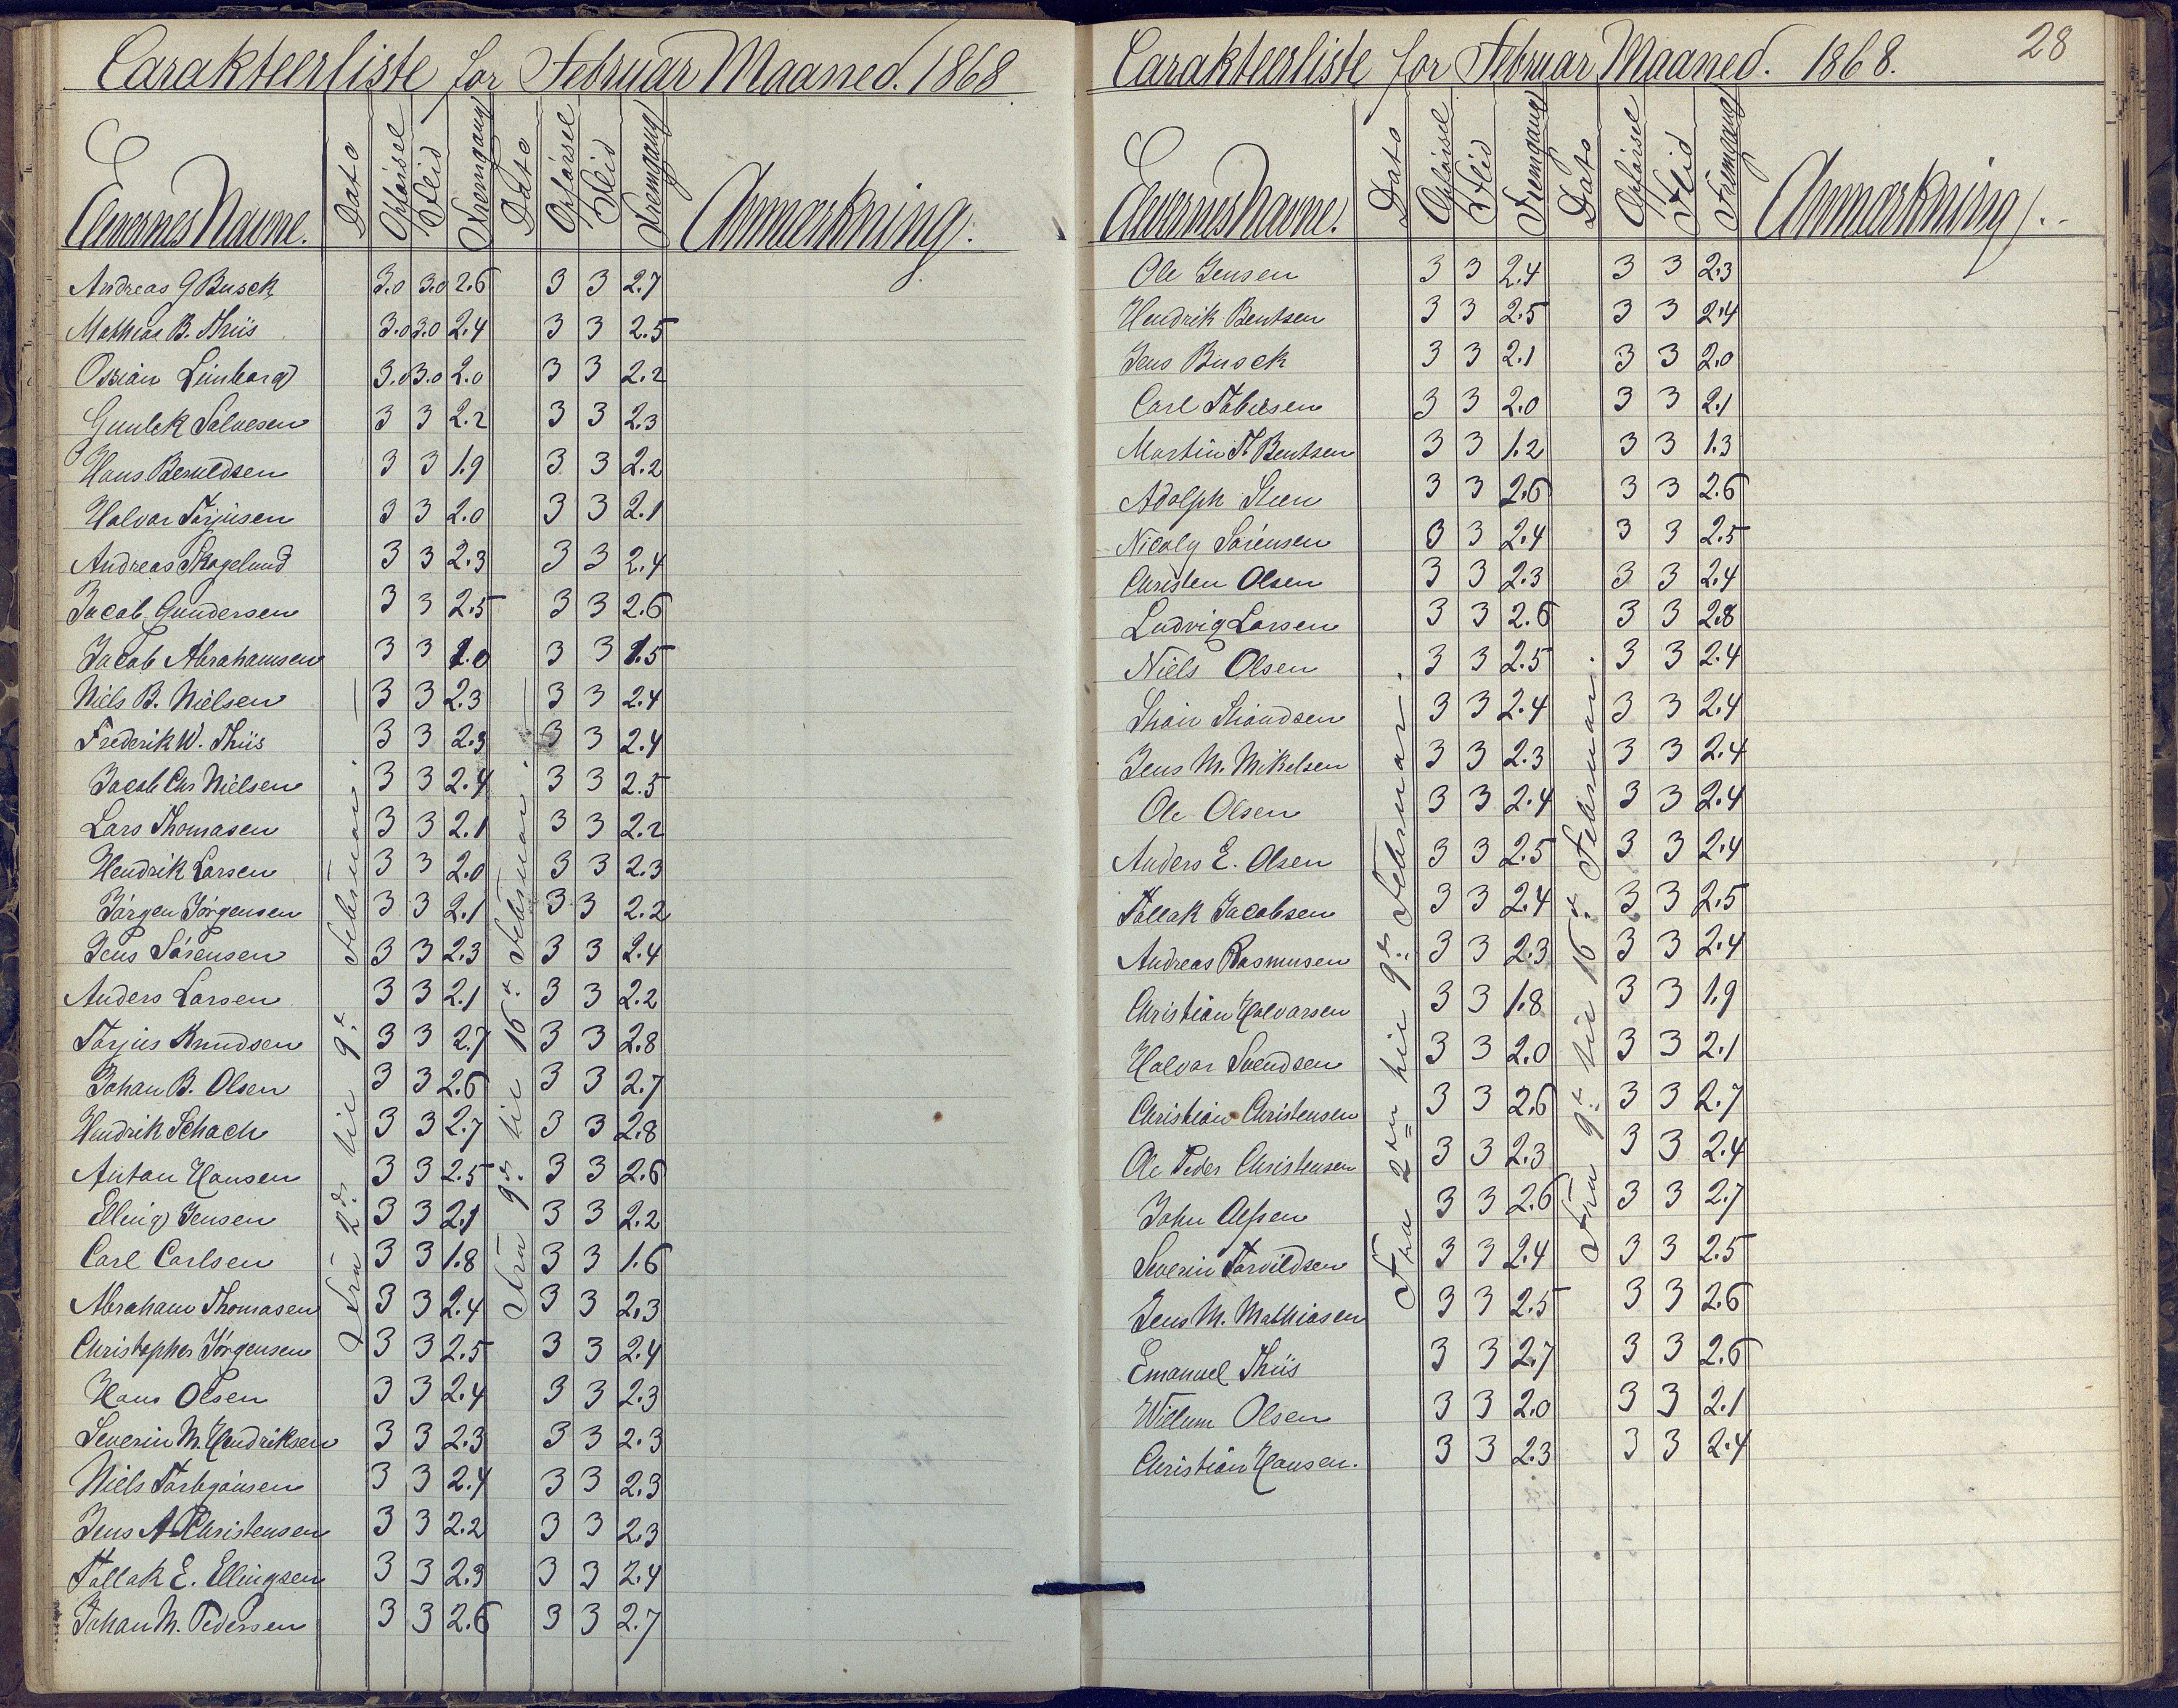 Carakteerliste for Februar Maaned. 1868
Elevernes Navne. Dato Opførsel Flid Fremgang Dato Opførsel Flid Fremgang Anmærkning.
Andreas G Busch 3.0 3.0 2.6 3 3 2.7
Mathias B. Thiis 3.0 3.0 2.4 3 3 2.5
Ossian Limborg 3.0 3.0 2.0 3 3 2.2
Gunlek Salvesen 3 3 2.2 3 3 2.3
Hans Beruldsen 3 3 1.9 3 3 2.2
Halvor Torjusen 3 3 2.0 3 3 2.1
Andreas Skogelund 3 3 2.3 3 3 2.4
Jacob Gundersen 3 3 2.5 3 3 2.6
Jacob Abrahamsen 3 3 1.0 3 3 1.5
Niels B. Nielsen 3 3 2.3 3 3 2.4
Frederik W. Thiis 3 3 2.3 3 3 2.4
Jacob Chr Nielsen 3 3 2.4 3 3 2.5
Lars Thomasen 3 3 2.1 3 3 2.2
Hendrik Larsen 3 3 2.0 3 3 2.3
Jørgen Jørgensen 3 3 2.1 3 3 2.2
Jens Sørensen 3 3 2.3 3 3 2.4
Anders Larsen 3 3 2.1 3 3 2.2
Torjus Knudsen 3 3 2.7 3 3 2.8
Johan B. Olsen 3 3 2.6 3 3 2.7
Hendrik Schach 3 3 2.7 3 3 2.8
Anton Hansen 3 3 2.5 3 3 2.6
Elling Jensen 3 3 2.1 3 3 2.2
Carl Carlsen 3 3 1.8 3 3 1.6
Abraham Thomasen 3 3 2.4 3 3 2.3
Christopher Jørgensen 3 3 2.5 3 3 2.4
Hans Olsen 3 3 2.4 3 3 2.3
Severin M. Hendriksen 3 3 2.3 3 3 2.3
Niels Torbjønsen 3 3 2.4 3 3 2.3
Jens A Christensen 3 3 2.2 3 3 2.3
Tallak E. Ellingsen 3 3 2.3 3 3 2.4
Johan M. Pedersen 3 3 2.6 3 3 2.7
Fra 2de til 9de Februar.
Fra 9de til 16de Februar.
28
Carakteerliste for Februar Maaned. 1868.
Elevernes Navne. Dato Opførsel Flid Fremgang Dato Opførsel Flid Fremgang Anmærkning.
Ole Jensen 3 3 2.4 3 3 2.3
Hendrik Bentsen 3 3 2.5 3 3 2.4
Jens Busch 3 3 2.1 3 3 2.0
Carl Tobiesen 3 3 2.0 3 3 2.1
Martin T. Bentsen 3 3 1.2 3 3 1.3
Adolph Steen 3 3 2.6 3 3 2.6
Nicoly Sørensen 3 3 2.4 3 3 2.5
Christen Olsen 3 3 2.3 3 3 2.4
Ludvig Larsen 3 3 2.6 3 3 2.8
Niels Olsen 3 3 2.5 3 3 2.4
3 3 2.4 3 3 2.4
Jens M. Mikelsen 3 3 2.3 3 3 2.4
Ole Olsen 3 3 2.4 3 3 2.4
Anders E. Olsen 3 3 2.5 3 3 2.4
Tallak Jacobsen 3 3 2.4 3 3 2.5
Andreas Rasmusen 3 3 2.3 3 3 2.4
Christian Halvorsen 3 3 1.8 3 3 1.9
Halvor Svendsen 3 3 2.0 3 3 2.1
Christian Christensen 3 3 2.6 3 3 2.7
Ole Peder Christensen 3 3 2.3 3 3 2.4
John Olssen 3 3 2.6 3 3 2.7
Severin Torvildsen 3 3 2.4 3 3 2.5
Jens M. Mathiasen 3 3 2.5 3 3 2.6
Emanuel Thiis 3 3 2.7 3 3 2.6
Willum Olsen 3 3 2.0 3 3 2.1
Christian Hansen. 3 3 2.3 3 3 2.4
Fra 2den til 9de Februar.
Fra 9de til 16de Februar.